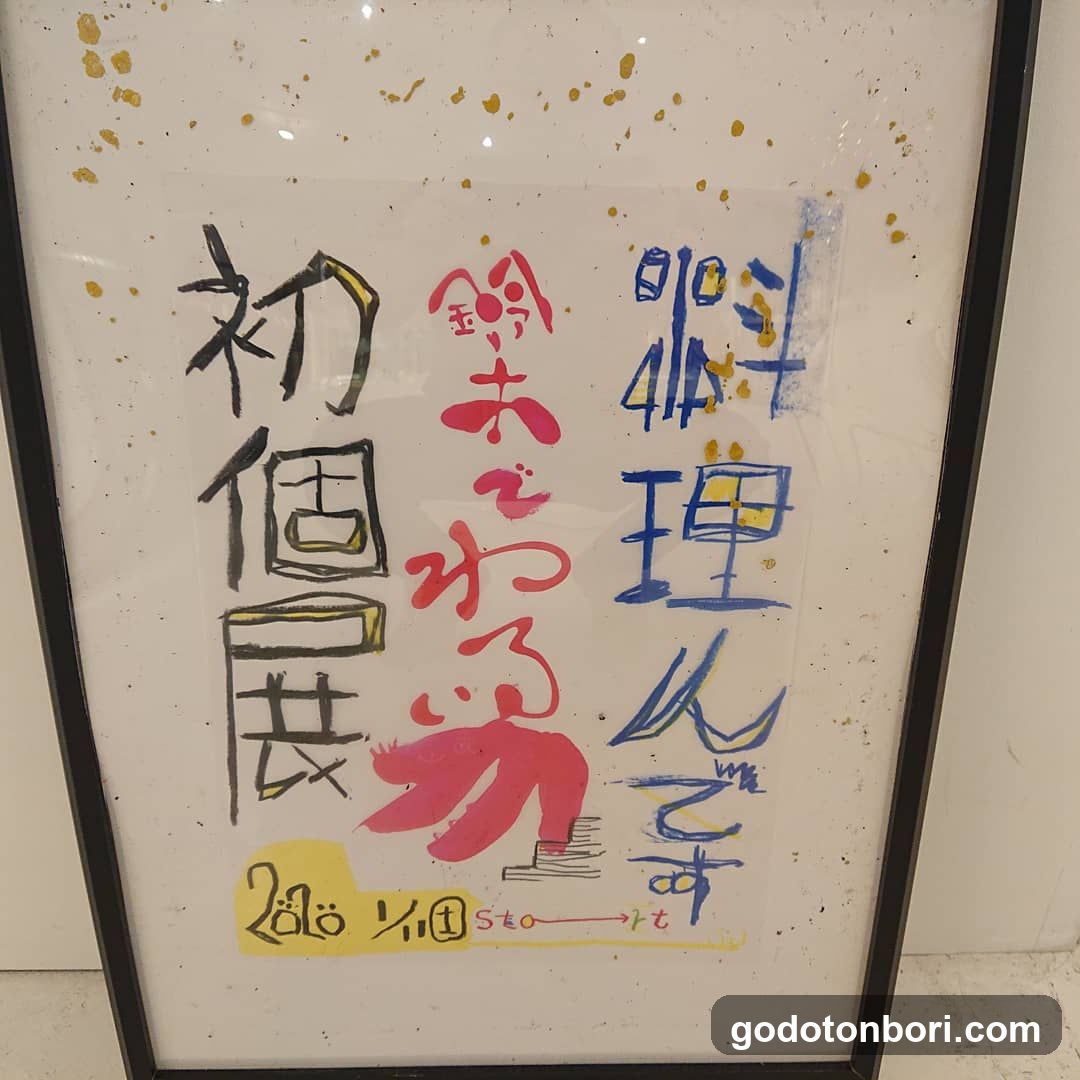 料理んです
鈴木でわ
初個展
2020 1/11 土 Sta→rt
godotonbori.com